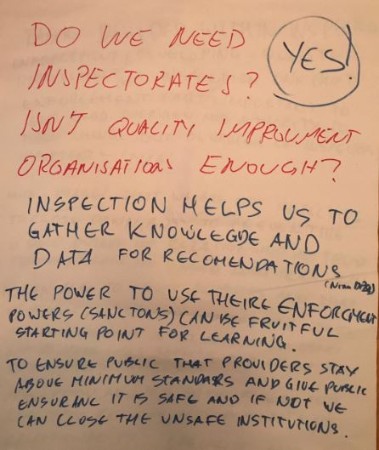 DO WE NEED
YES!
INSPECTORATES?
ISN'T QUALITY IMPROVMENT
ORGANISATIONS ENOUGH?
INSPECTION HELPS US TO
GATHER KNOWLEGDE AND
DATA FOR RECOMENDATIONS
THE POWER TO USE THEIRE ENFORCMENT
POWERS (SANCTONS) CAN BE FRUITFUL
STARTING POINT FOR LEARNING.
TO ENSURE PUBLIC THAT PROVIDERS STAY
ABOVE MINIMUM STANDARS AND GIVE PUBLIC
ENSURANC IT IS SAFE AND IF NOT WE
CAN CLOSE THE UNSAFE INSTITUTIONS.